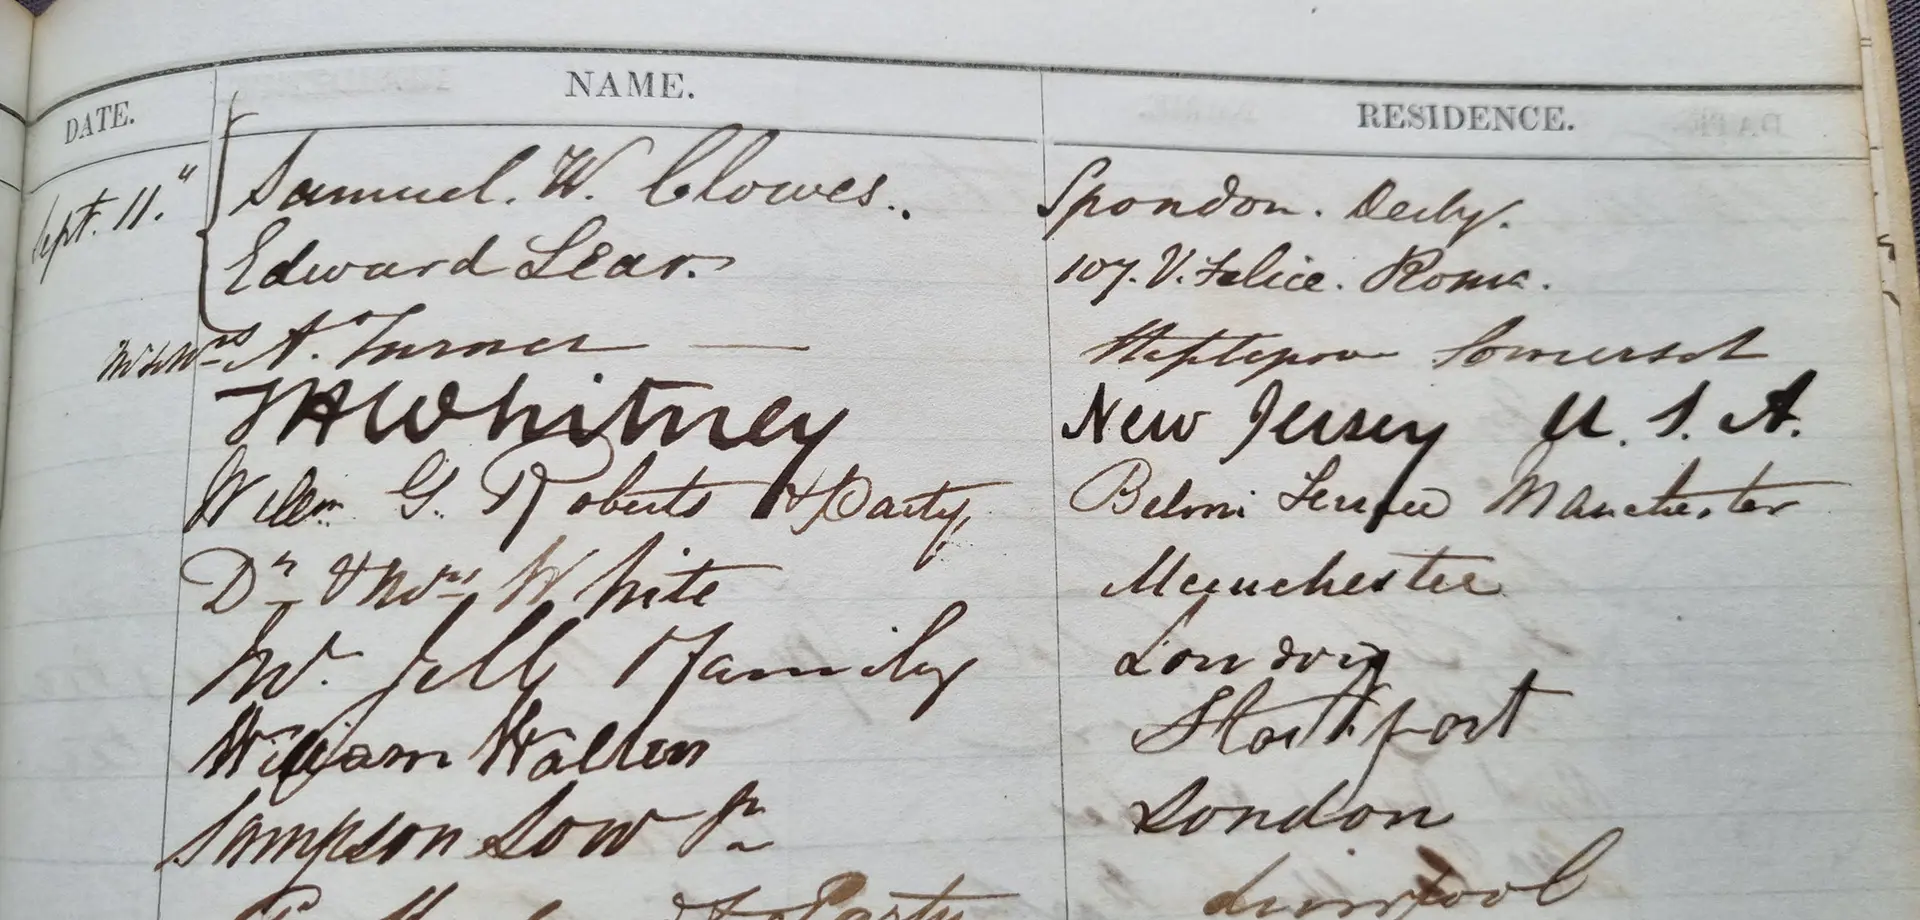 DATE. NAME. RESIDENCE.
Sept. 11." Samuel. W. Clowes.. Spondon. Derby.
Edward Lear. 107. V. Felice. Roma.
A. Turner — Somerset
Whitney New Jersey U. S. A.
G. Roberts & Party, Manchester
Dr & Mrs White Manchester
Family London
William Walton Stockport
Sampson Low Jr London
& Party Liverpool